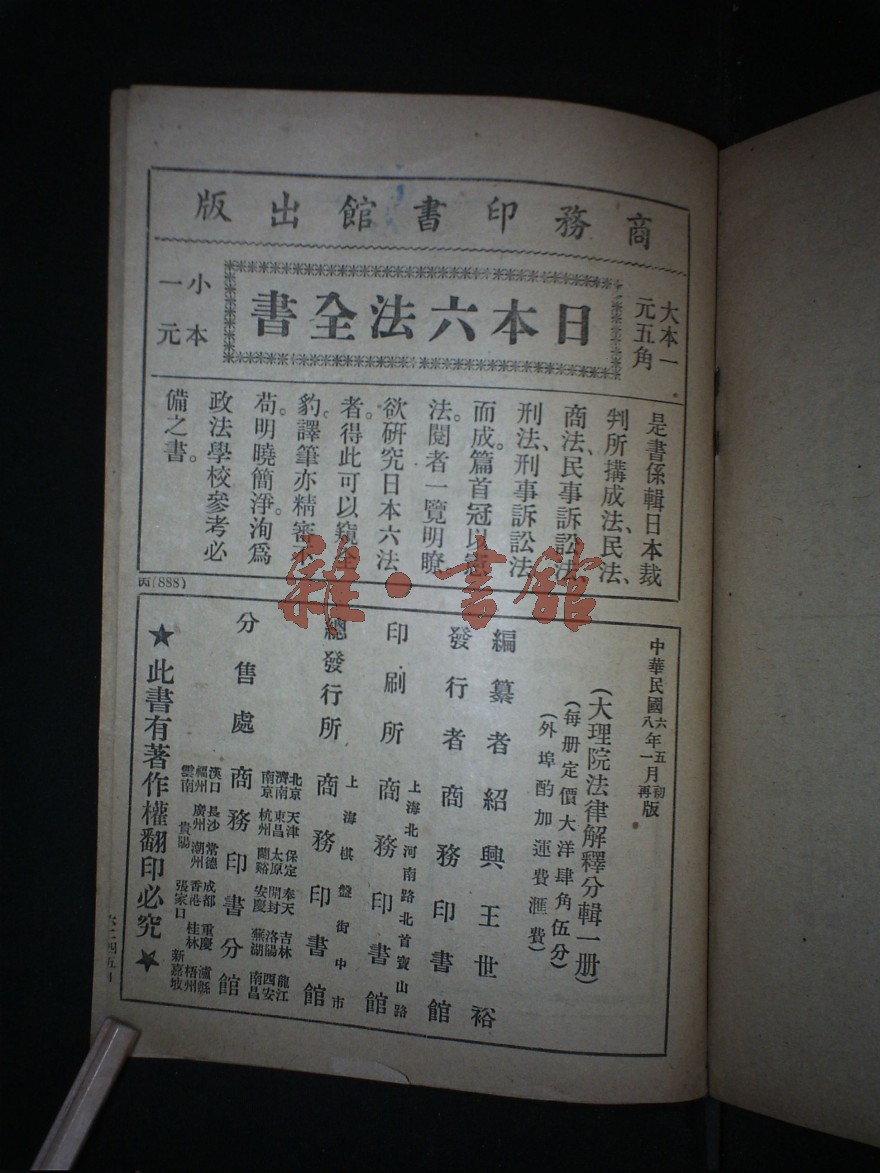 商務印書館出版
大本一
元五角
日本六法全書
小本
一元
是書係輯日本裁
判所搆成法、民法、
商法、民事訴訟法、
刑法、刑事訴訟法
而成。篇首冠以憲
法。閱者一覽明瞭
欲研究日本六法
者。得此可以窺全
豹。譯筆亦精審不
苟。明曉簡淨。洵爲
政法學校參考必
備之書。
丙(888)
中華民國六年五月初版
八年一月再版
(大理院法律解釋分輯一册)
(每册定價大洋肆角伍分)
(外埠酌加運費滙費)
編纂者 紹興王世裕
發行者 商務印書館
上海北河南路北首寶山路
印刷所 商務印書館
上海棋盤街中市
總發行所 商務印書館
北京 天津 保定 奉天 吉林 龍江
濟南 東昌 太原 開封 洛陽 西安
南京 杭州 蘭谿 安慶 蕪湖 南昌
分售處 商務印書分館
漢口 長沙 常德 成都 重慶 瀘縣
福州 廣州 潮州 香港 桂林 梧州
雲南 貴陽 張家口 新嘉坡
★此書有著作權翻印必究★
雜·書館